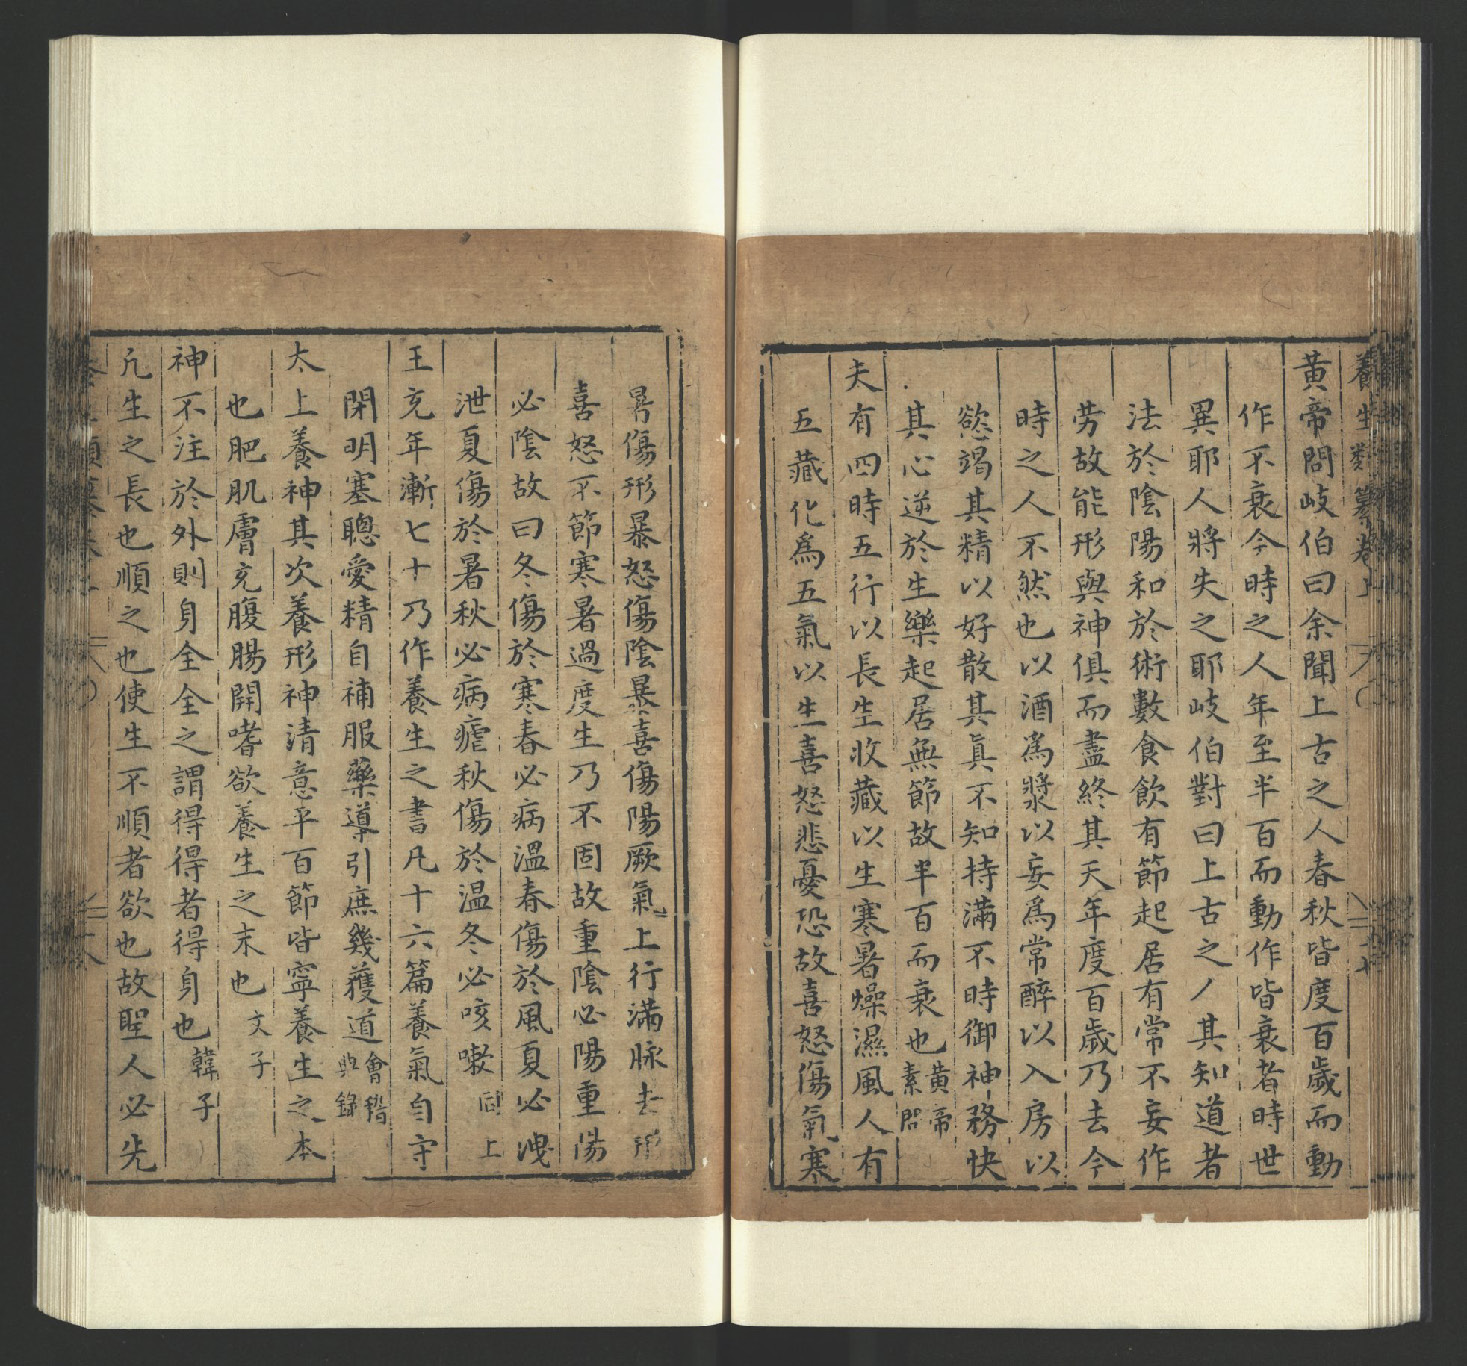 養生類纂卷上
黃帝問岐伯曰余聞上古之人春秋皆度百歲而動
作不衰今時之人年至半百而動作皆衰者時世
異耶人將失之耶岐伯對曰上古之人其知道者
法於陰陽和於術數食飲有節起居有常不妄作
劳故能形與神俱而盡終其天年度百歲乃去今
時之人不然也以酒爲漿以妄爲常醉以入房以
慾竭其精以好散其眞不知持滿不時御神務快
其心逆於生樂起居無節故半百而衰也黃帝素問
夫有四時五行以長生收藏以生寒暑燥濕風人有
五藏化爲五氣以生喜怒悲憂恐故喜怒傷氣寒
暑傷形暴怒傷陰暴喜傷陽厥氣上行滿脉去形
喜怒不節寒暑過度生乃不固故重陰必陽重陽
必陰故曰冬傷於寒春必病溫春傷於風夏必洩
泄夏傷於暑秋必病瘧秋傷於溫冬必咳嗽同上
王充年漸七十乃作養生之書凡十六篇養氣自守
閉明塞聰愛精自補服藥導引庶幾獲道會稽典錄
太上養神其次養形神清意平百節皆寧養生之本
也肥肌膚充腹腸開嗜欲養生之末也文子
神不注於外則身全全之謂得得者得身也韓子
凡生之長也順之也使生不順者欲也故聖人必先